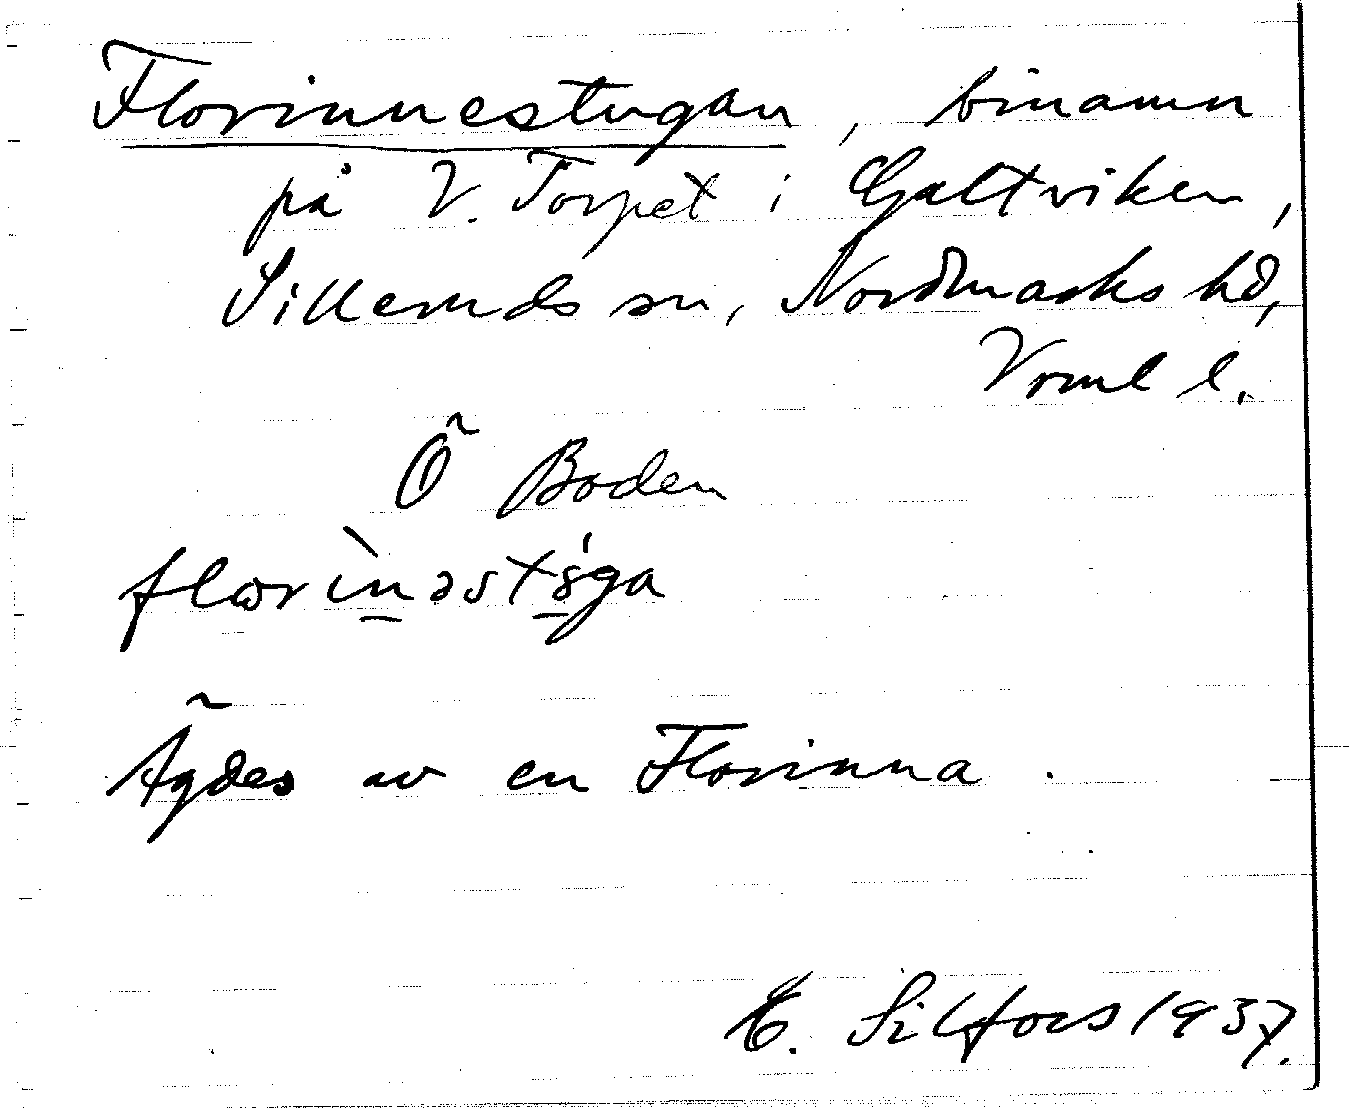 Florinnestugan, binamn
på V. Torpet i Galtviken,
Silleruds sn, Nordmarks hd,
Vrml l.
Ö Boden
Ägdes av en Florinna.
E. Silfors 1937.